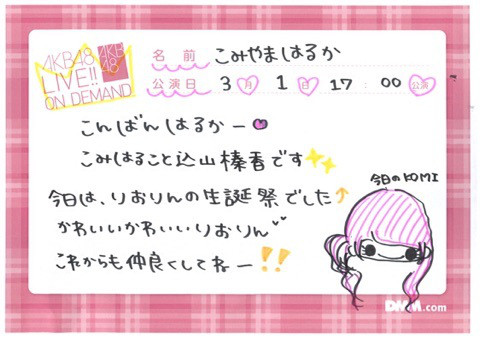 AKB48
LIVE!!
ON DEMAND
AKB
48
名前 こみやまはるか
公演日 3月 1日 17:00公演
こんばんはるかー
こみはること込山榛香です
今日は、りおりんの生誕祭でした
かわいいかわいいりおりん
これからも仲良くしてねー!!
今日のKOMI
DMM.com